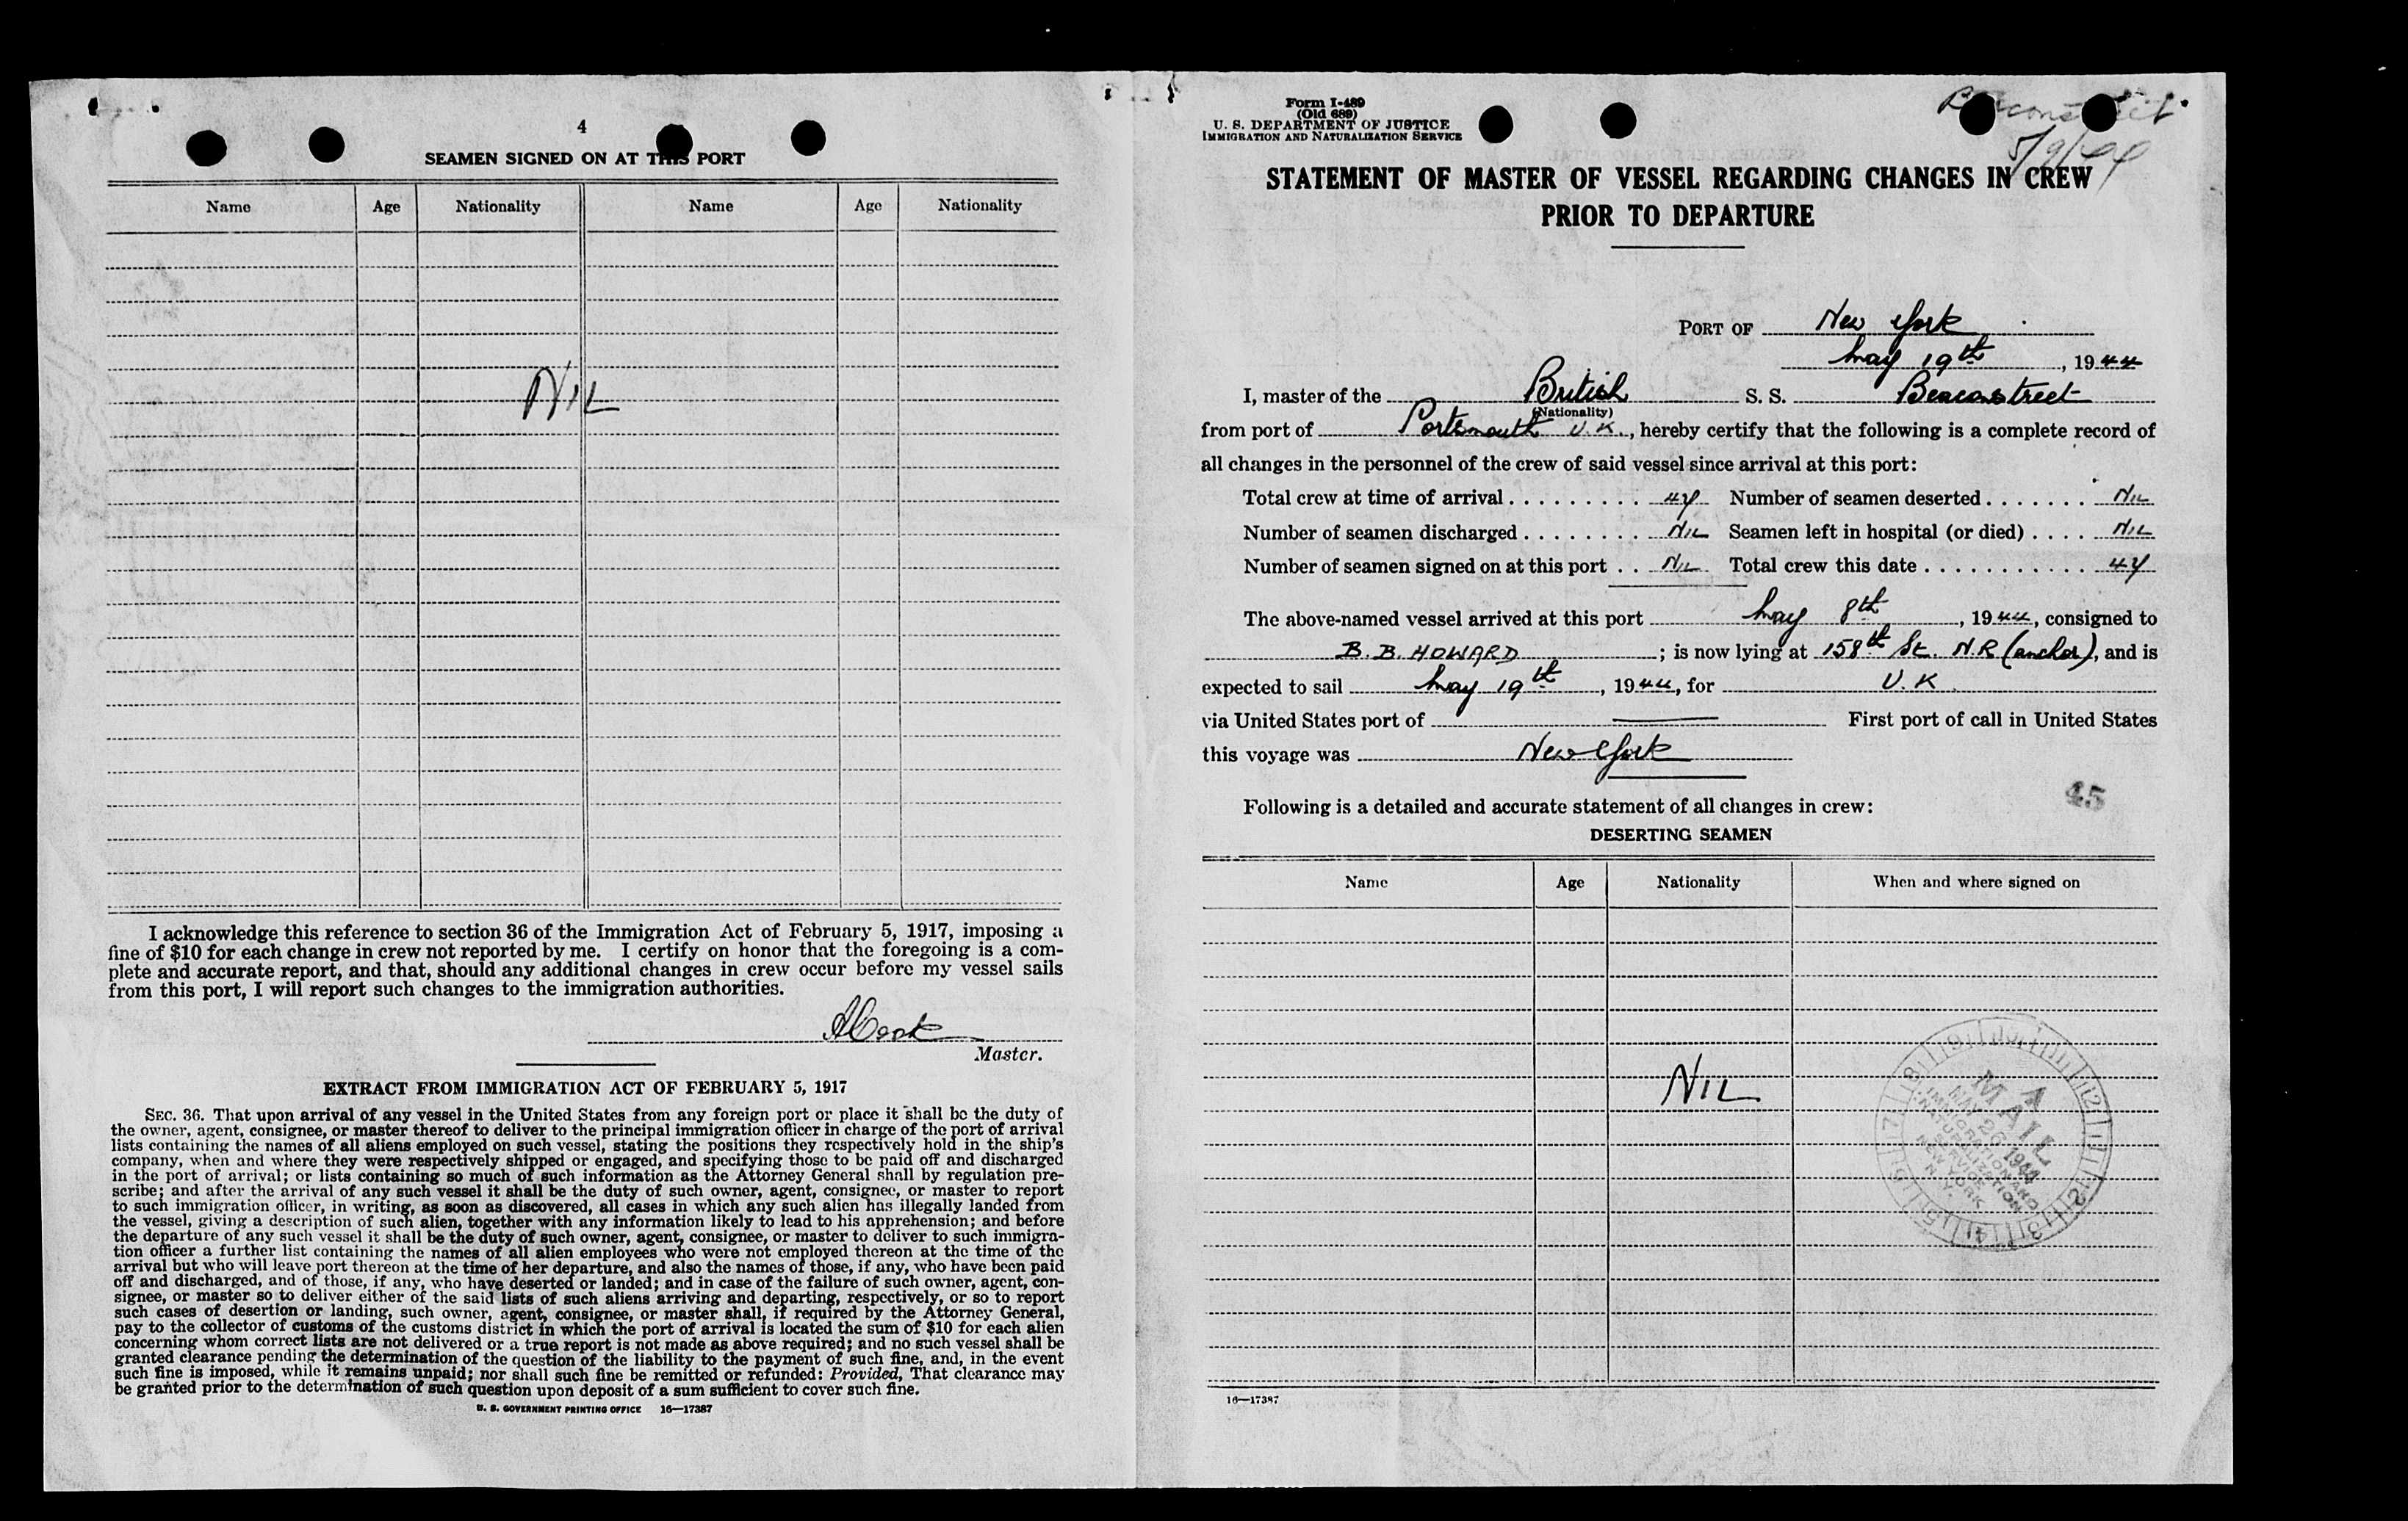 4
SEAMEN SIGNED ON AT THIS PORT
Name Age Nationality Name Age Nationality
NIL
I acknowledge this reference to section 36 of the Immigration Act of February 5, 1917, imposing a
fine of $10 for each change in crew not reported by me. I certify on honor that the foregoing is a com-
plete and accurate report, and that, should any additional changes in crew occur before my vessel sails
from this port, I will report such changes to the immigration authorities.
ACook
Master.
EXTRACT FROM IMMIGRATION ACT OF FEBRUARY 5, 1917
SEC. 36. That upon arrival of any vessel in the United States from any foreign port or place it shall be the duty of
the owner, agent, consignee, or master thereof to deliver to the principal immigration officer in charge of the port of arrival
lists containing the names of all aliens employed on such vessel, stating the positions they respectively hold in the ship's
company, when and where they were respectively shipped or engaged, and specifying those to be paid off and discharged
in the port of arrival; or lists containing so much of such information as the Attorney General shall by regulation pre-
scribe; and after the arrival of any such vessel it shall be the duty of such owner, agent, consignee, or master to report
to such immigration officer, in writing, as soon as discovered, all cases in which any such alien has illegally landed from
the vessel, giving a description of such alien, together with any information likely to lead to his apprehension; and before
the departure of any such vessel it shall be the duty of such owner, agent, consignee, or master to deliver to such immigra-
tion officer a further list containing the names of all alien employees who were not employed thereon at the time of the
arrival but who will leave port thereon at the time of her departure, and also the names of those, if any, who have been paid
off and discharged, and of those, if any, who have deserted or landed; and in case of the failure of such owner, agent, con-
signee, or master so to deliver either of the said lists of such aliens arriving and departing, respectively, or so to report
such cases of desertion or landing, such owner, agent, consignee, or master shall, if required by the Attorney General,
pay to the collector of customs of the customs district in which the port of arrival is located the sum of $10 for each alien
concerning whom correct lists are not delivered or a true report is not made as above required; and no such vessel shall be
granted clearance pending the determination of the question of the liability to the payment of such fine, and, in the event
such fine is imposed, while it remains unpaid; nor shall such fine be remitted or refunded: Provided, That clearance may
be granted prior to the determination of such question upon deposit of a sum sufficient to cover such fine.
U. S. GOVERNMENT PRINTING OFFICE 16—17387
Form I-489
(Old 689)
U. S. DEPARTMENT OF JUSTICE
IMMIGRATION AND NATURALIZATION SERVICE
5/9/44
STATEMENT OF MASTER OF VESSEL REGARDING CHANGES IN CREW
PRIOR TO DEPARTURE
PORT OF New York
May 19th, 1944
I, master of the British S. S. Beaconstreet
(Nationality)
from port of Portsmouth U.K., hereby certify that the following is a complete record of
all changes in the personnel of the crew of said vessel since arrival at this port:
Total crew at time of arrival . . . . . . . . . Number of seamen deserted . . . . . . . NIL
Number of seamen discharged . . . . . . . . NIL Seamen left in hospital (or died) . . . . NIL
Number of seamen signed on at this port . . NIL Total crew this date . . . . . . . . . . .
The above-named vessel arrived at this port May 8th, 1944, consigned to
B. B. HOWARD; is now lying at 158th St. N.R (anchor), and is
expected to sail May 19th, 1944, for U.K.
via United States port of — First port of call in United States
this voyage was New York
45
Following is a detailed and accurate statement of all changes in crew:
DESERTING SEAMEN
Name Age Nationality When and where signed on
NIL
MAIL
MAY 26 1944
IMMIGRATION AND
NATURALIZATION
SERVICE
NEW YORK
N.Y.
16—17387